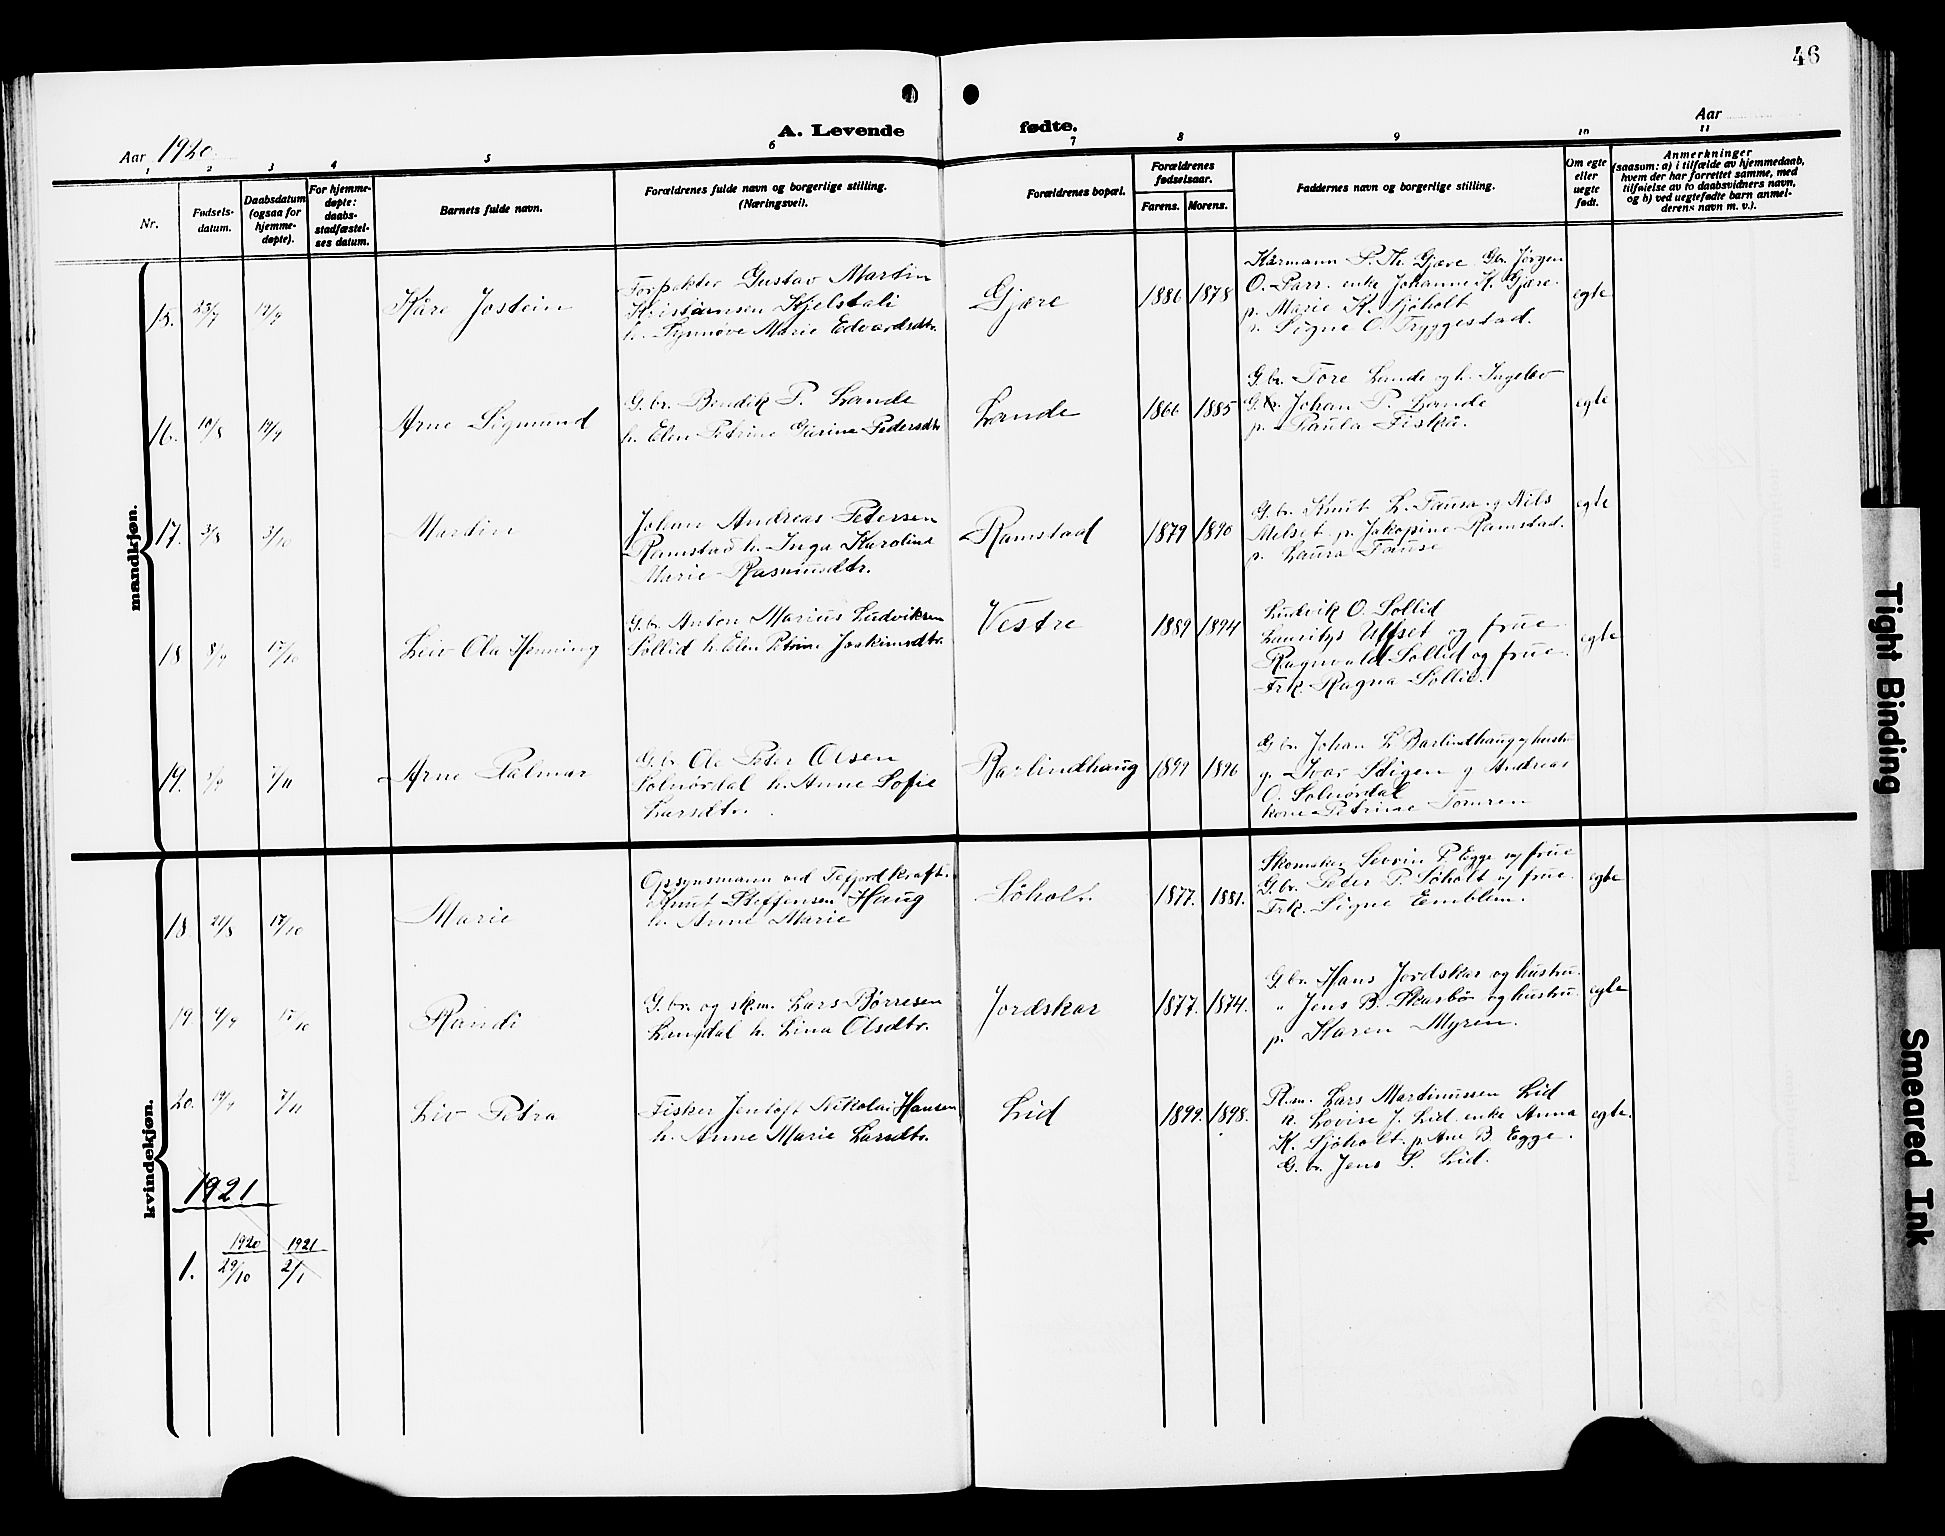 46
A. Levende fødte.
Aar 1920
Aar
1 2 3 4 5 6 7 8 9 10 11
Nr.
Fødsels-
datum.
Daabsdatum
(ogsaa for
hjemme-
døpte).
For hjemme-
døpte:
daabs-
stadfæstel-
ses datum.
Barnets fulde navn.
Forældrenes fulde navn og borgerlige stilling.
(Næringsvei).
Forældrenes bopæl.
Forældrenes
fødselsaar.
Farens. Morens.
Faddernes navn og borgerlige stilling.
Om egte
eller
uegte
født.
Anmerkninger
(saasom: a) i tilfælde av hjemmedaab,
hvem der har forrettet samme, med
tilføielse av to daabsvidners navn,
og b) ved uegtefødte barn anmel-
derens navn m. v.).
mandkjøn.
15. 19/9 Kåre Jostein
Forpakter Gustav Martin
Kristiansen Kjelstali
h. Synnøve Marie Edvardsdtr.
Gjære 1886 1878
Kårmann P. Th. Gjære Gbr. Jørgen
O. Parr. enke Johanne K. Gjære.
p. Marie K. Sjøholt
p. Signe O. Tryggestad.
egte
16. 10/8 19/9 Arne Sigmund
G.br. Bendik P. Lande
h. Elen Petrine Gurine Pedersdtr
Lande 1866 1885
G.br. Tore Lande og h. Ingebor
G.br. Johan P. Lande
p. Paula Fiskå.
egte
17. 3/8 3/10 Martin
Johan Andreas Petersen
Ramstad h. Inga Karoline
Marie Rasmusdtr.
Ramstad 1879 1890
G.br. Knut L. Fausa og Nils
Melset p. Jakopine Ramstad.
p. Laura Fause
egte
18 8/9 17/10 Leiv Ola Henning
G.br. Anton Marius Ludviksen
Sollid h. Elen Petrine Joakimsdtr.
Vestre 1889 1894
Ludvik O. Sollid
Lauritys Uffset og frue
Ragnvald Sollid og frue.
Frk. Ragna Sollid.
egte
19. 7/11 Arne Palmar
G.br Ole Peter Olsen
Solnørdal h. Anne Sofie
Larsdtr.
Barlindhaug 1891 1896
G.br. Johan L Barlindhaug og hustr
g. Ivar Stigen g Andreas
O. Solnørdal
kone Petrine Tomren
kvindekjøn.
18. 21/8 17/10 Marie
Opsynsmann ved Tafjord kraft.
Knut Steffensen Haug
h. Anne Marie
Søholt. 1877. 1881.
Skomaker Sevrin P. Egge og frue
G.br. Peter P. Søholt og frue.
Frk. Signe Emblem.
egte
19 4/9 17/10 Randi
G.br. og skm. Lars Børresen
Langdal h. Lina Olsdtr.
Jordskar 1877. 1874.
G.br. Hans Jordskar og hustru.
" Jens B. Skarbø og hustru.
p. Karen Myren.
egte
20. 19/9 7/11 Liv Petra
Fisker Jentoft Nikolai Hansen
h. Anne Marie Larsdtr.
Lid 1899. 1898.
Pl.m. Lars Martinussen Lid
h. Lovise J. Lid. enke Anna
K. Sjøholt. p. Ane B. Egge.
G.br. Jens P. Lid.
egte.
1921
1920 1921
1. 29/10 2/1
Tight Binding
Smeared Ink